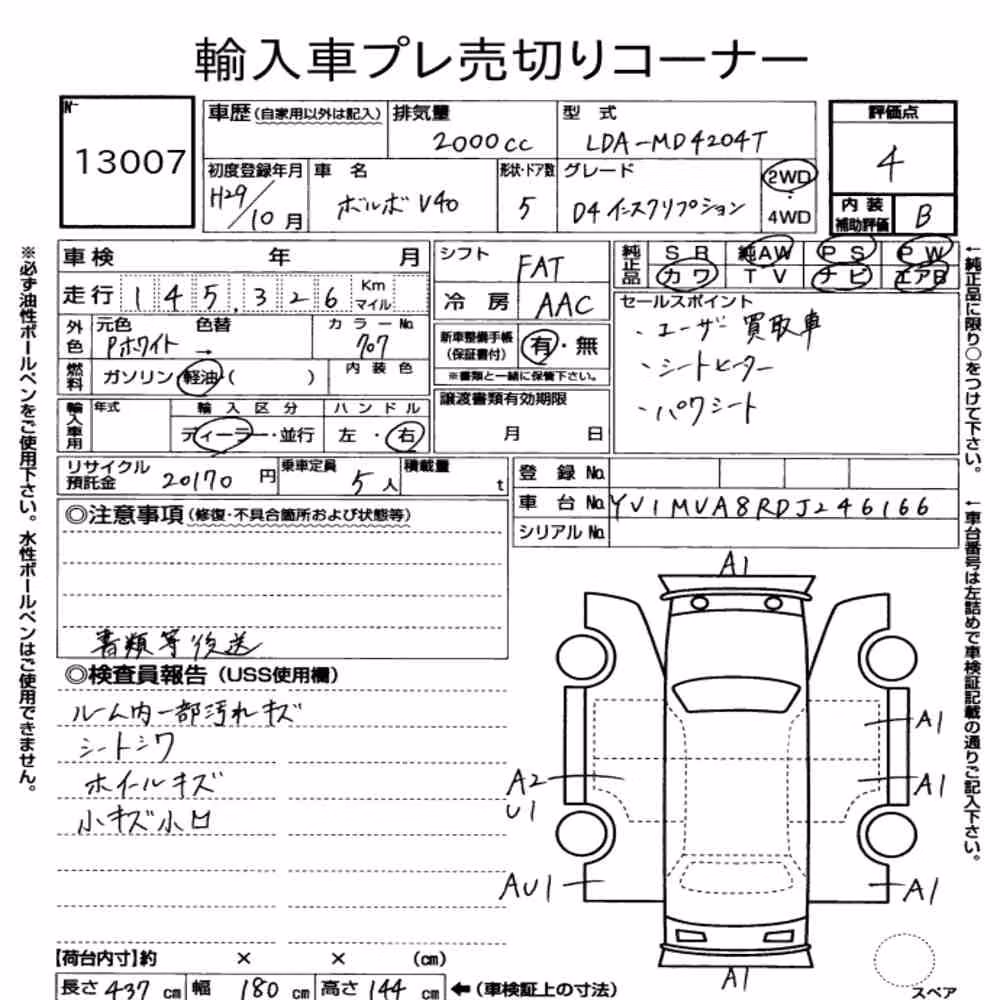 輸入車プレ売切りコーナー
No 13007
車歴(自家用以外は記入) 排気量 2000cc 型式 LDA-MD4204T
評価点 4
初度登録年月 H29/10月 車名 ボルボ V40 形状・ドア数 5 グレード D4 インスクリプション 2WD 4WD
内装補助評価 B
車検 年 月
走行 145,326 Km マイル
外色 元色 Pホワイト 色替 → カラーNo. 707
燃料 ガソリン・軽油・( ) 内装色
輸入車用 年式 輸入区分 ディーラー・並行 ハンドル 左・右
シフト FAT
冷房 AAC
新車整備手帳(保証書付) 有・無
※書類と一緒に保管下さい。
譲渡書類有効期限
月 日
純正品 SR 純AW PS PW
カワ TV ナビ エアB
セールスポイント
・ユーザー買取車
・シートヒーター
・パワシート
リサイクル預託金 20170円 乗車定員 5人 積載量 t
登録No.
車台No. YV1MVA8RDJ246166
シリアルNo.
◎注意事項(修復・不具合箇所および状態等)
書類等後送
◎検査員報告(USS使用欄)
ルーム内一部汚れキズ
シートシワ
ホイールキズ
小キズ小凹
A1
A1
A2
U1
A1
AU1
A1
A1
スペア
【荷台内寸】約 × × (cm)
長さ 437 cm 幅 180 cm 高さ 144 cm ←(車検証上の寸法)
※必ず油性ボールペンをご使用下さい。水性ボールペンはご使用できません。
←純正品に限り○をつけて下さい。
←車台番号は左詰めで車検証記載の通りご記入下さい。